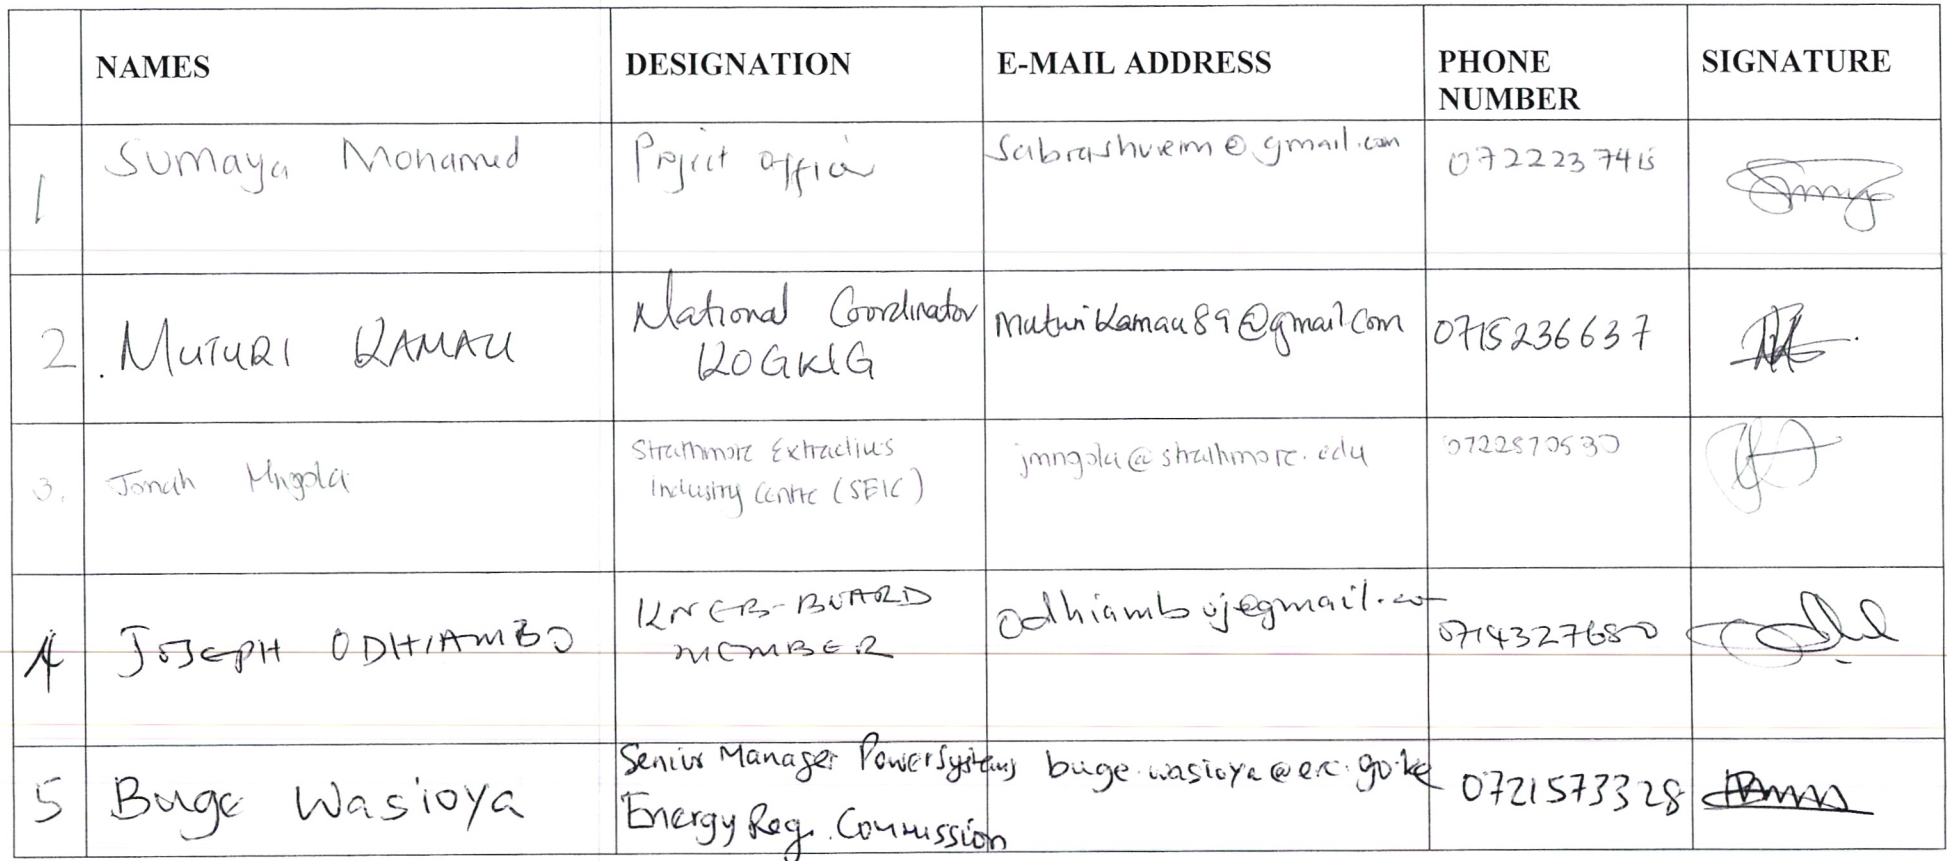 NAMES DESIGNATION E-MAIL ADDRESS PHONE NUMBER SIGNATURE
1 Sumaya Mohamed Project officer sabrashueim@gmail.com 0722237415
2. MUTURI KAMAU National Coordinator KOGKIG muturikamau89@gmail.com 0715236637
3. Jonah Mngola Strathmore Extractives Industry Centre (SEIC) jmngola@strathmore.edu 0722570530
4 JOSEPH ODHIAMBO KNEB-BOARD MEMBER odhiamboj@gmail.co 0714327680
5 Buge Wasioya Senior Manager Power Systems Energy Reg. Commission buge.wasioya@erc.go.ke 0721573328